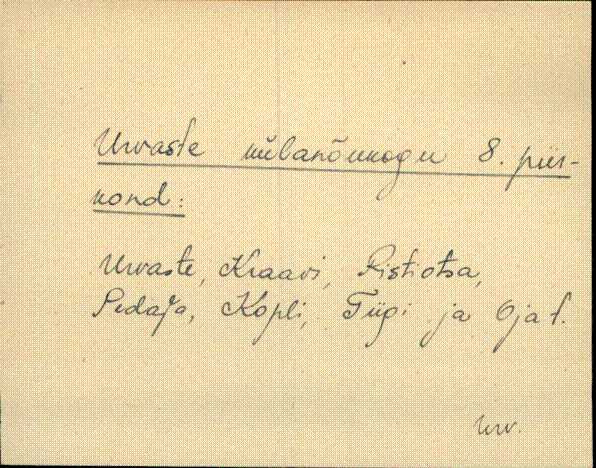 Urvaste külanõukogu 8. piir-
kond:
Urvaste, Kraavi, Ristiotsa,
Pedaja, Kopli, Tiigi ja Oja t.
Urv.